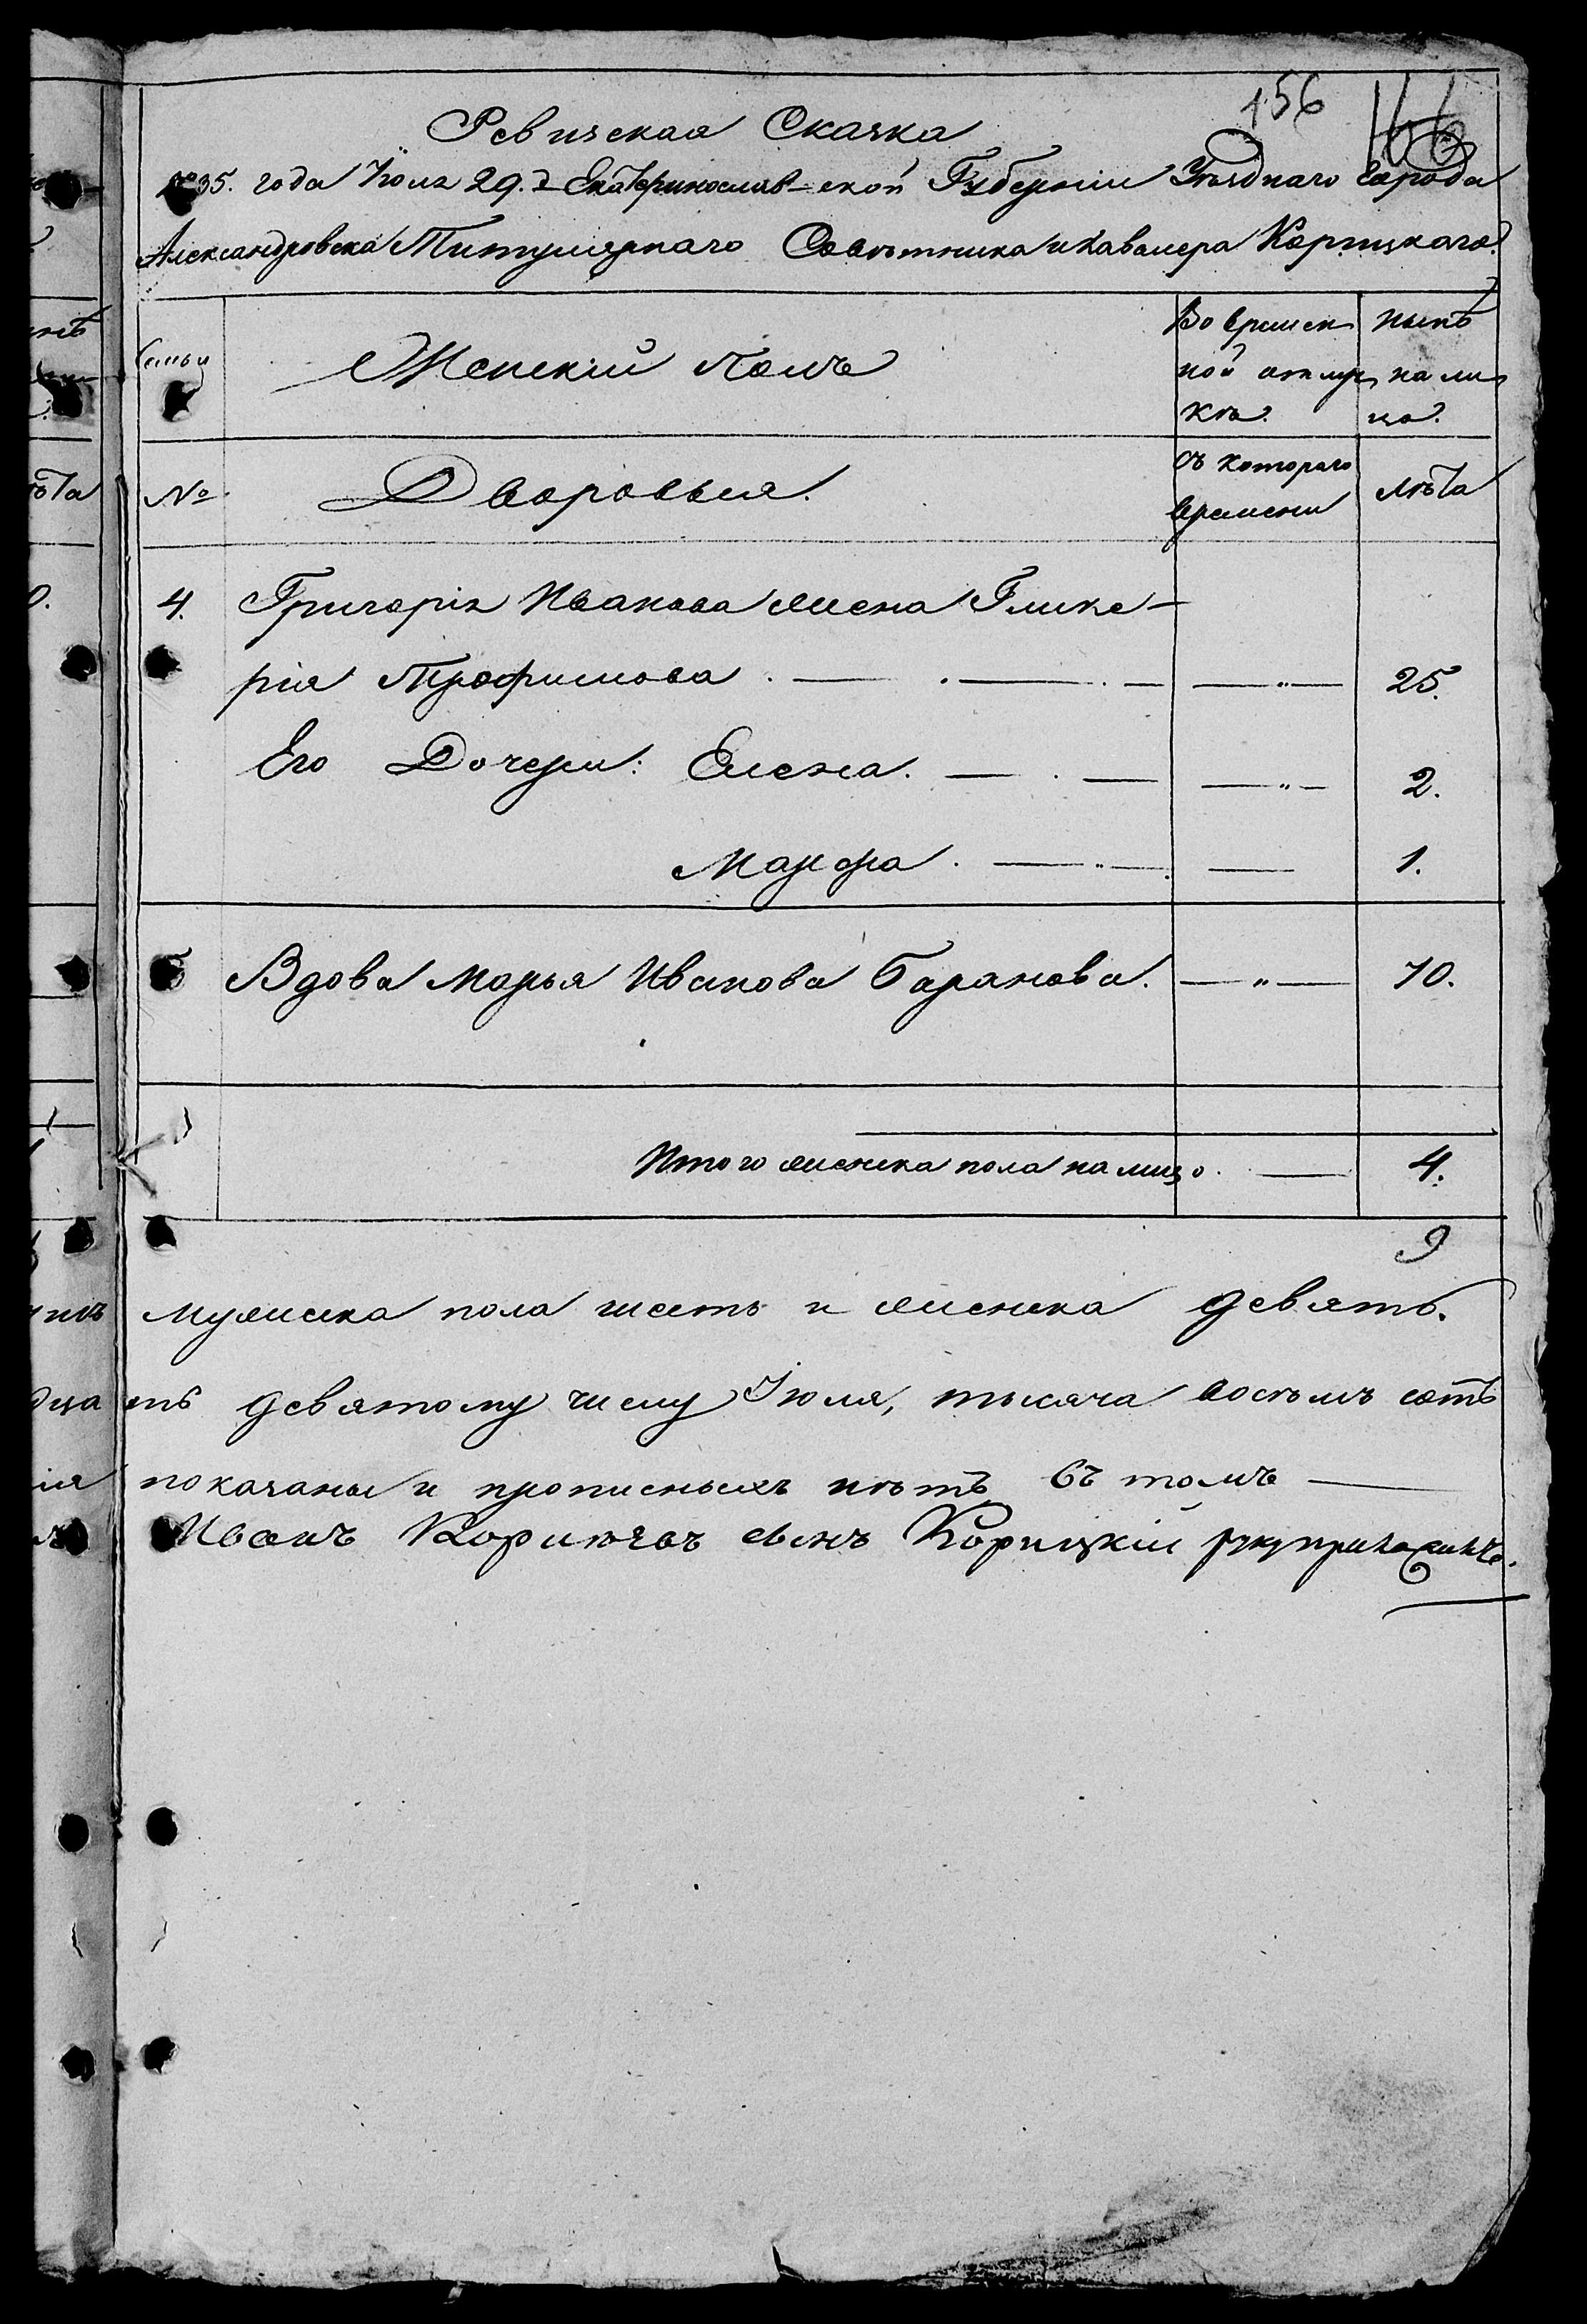 156 166
Ревизская Сказка
1835. года Іюля 29. д. Екатеринослав-ской Губерніи Уѣзднаго города
Александровска Титулярнаго Совѣтника и кавалера Корицкаго.
Семьи
Женскій полъ
Во времен
ной отлуч
кѣ.
нынѣ
на ли
цо.
№
Дворовыя.
съ котораго
времени
Лѣта
4. Григорія Иванова жена Глике-
рія Трофимова . — . — . — — „ — 25.
Его Дочери: Елена. — . — — „ — 2.
Марфа . — „ — — 1.
5 Вдова Марья Иванова Баранова. — „ — 70.
Итого женска пола на лицо. — 4.
9
мужеска пола шесть и женска девять.
ть девятому числу Іюля, тысяча восѣмъ сотъ
показаны и прописныхъ нѣтъ въ томъ —
Иванъ Корнѣевъ сынъ Корицкій руку приложилъ.